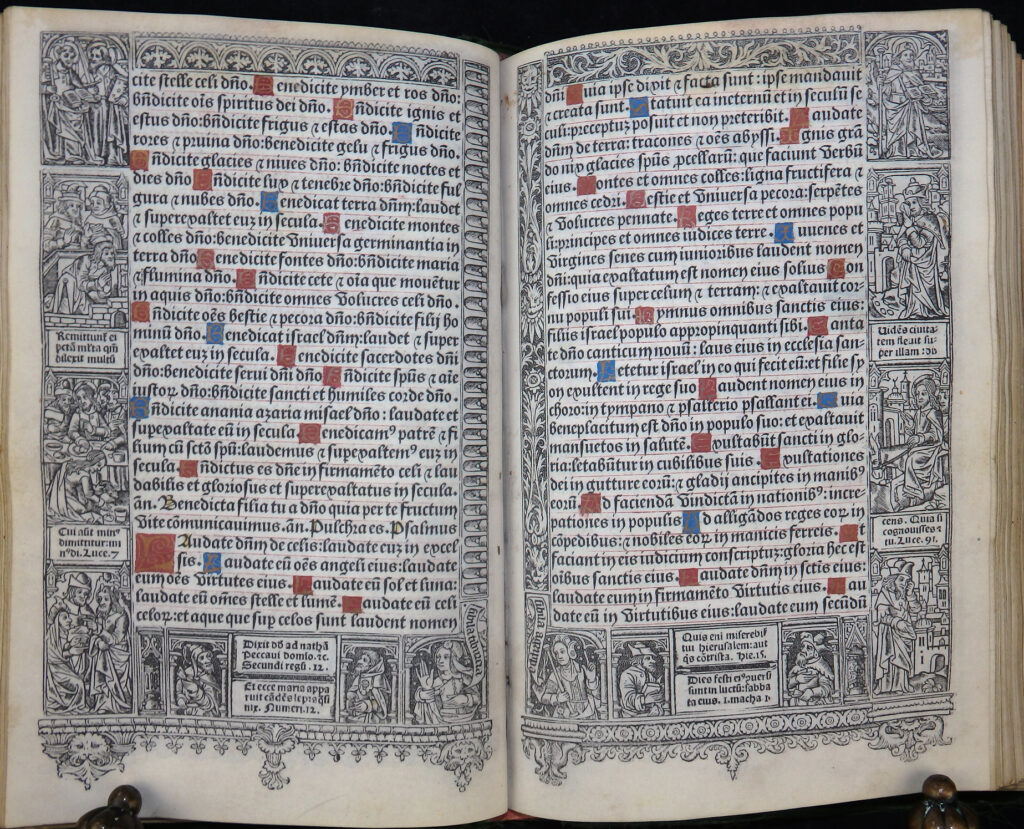 cite stelle celi dño. Benedicite ymber et ros dño:
bñdicite oīs spiritus dei dño. Bñdicite ignis et
estus dño: bñdicite frigus ⁊ estas dño. Bñdicite
rores ⁊ pruina dño: benedicite gelu ⁊ frigus dño.
Bñdicite glacies ⁊ niues dño: bñdicite noctes et
dies dño Bñdicite lux ⁊ tenebre dño: bñdicite ful
gura ⁊ nubes dño. Benedicat terra dñm: laudet
⁊ superexaltet euȝ in secula. Benedicite montes
⁊ colles dño: benedicite vniuersa germinantia in
terra dño Benedicite fontes dño: benedicite maria
⁊ flumina dño. Bñdicite cete ⁊ oīa que mouētur
in aquis dño: bñdicite omnes volucres celi dño.
Bñdicite oēs bestie ⁊ pecora dño: bñdicite filij ho
minū dño. Benedicat israel dñm: laudet ⁊ super
exaltet euȝ in secula. Benedicite sacerdotes dñi
dño: benedicite serui dñi dño Bñdicite spūs ⁊ aīe
iustoꝝ dño: bñdicite sancti et humiles corde dño.
Bñdicite anania azaria misael dño: laudate et
supexaltate eū in secula. Benedicamꝰ patrē ⁊ fi
lium cū scto spū: laudemus ⁊ supexaltemꝰ euȝ in
secula. Bñdictus es dñe in firmamēto celi ⁊ lau
dabilis et gloriosus et superexaltatus in secula.
añ. Benedicta filia tu a dño quia per te fructum
vite cōmunicauimus. añ. Pulchra es. Psalmus
Laudate dñm de celis: laudate euȝ in excel
sis. Laudate eū oēs angeli eius: laudate
eum oēs virtutes eius. Laudate eū sol et luna:
laudate eū omēs stelle et lumē. Laudate eū celi
celoꝝ: et aque que sup celos sunt laudent nomen
Remittunt ei
petā mīta qm̄
dilexit multū
Cui aūt minꝰ
dimittitur: mi
nꝰ di. Luce. 7
Dixit dd ad nathā
Peccaui domīo. ⁊c.
Secundi regū. 12.
Et ecce maria appa
ruit cādēs lepra q̄si
nix. Numeri. 12.
dñi Quia ipse dixit ⁊ facta sunt: ipse mandauit
⁊ creata sunt. Statuit ea ineternū et in seculū se
culi: preceptuȝ posuit et non preteribit. Laudate
dñm de terra: tracones ⁊ oēs abyssi. Ignis grā
do nyx glacies spūs ꝓcellarū: que faciunt verbū
eius. Montes et omnes colles: ligna fructifera ⁊
omnes cedri. Bestie et vniuersa pecora: serpētes
⁊ volucres pennate. Reges terre et omnes popu
li: principes et omnes iudices terre. Iuuenes et
virgines senes cum iunioribus laudent nomen
dñi: quia exaltatum est nomen eius solius Con
fessio eius super celum ⁊ terram: ⁊ exaltauit cor
nu populi sui Hymnus omnibus sanctis eius:
filiis israel populo appropinquanti sibi. Canta
te dño canticum nouū: laus eius in ecclesia san
ctorum. Letetur israel in eo qui fecit eū: et filie sy
on exultent in rege suo Laudent nomen eius in
choro: in tympano ⁊ psalterio psallant ei. Quia
beneplacitum est dño in populo suo: et exaltauit
mansuetos in salutē. Exultabūt sancti in glo
ria: letabūtur in cubilibus suis. Exultationes
dei in gutture eorū: ⁊ gladij ancipites in manibꝰ
eorū. Ad faciendā vindictā in nationibꝰ: incre
pationes in populis Ad alligādos reges eoꝝ in
cōpedibus: ⁊ nobiles eoꝝ in manicis ferreis. Vt
faciant in eis iudicium conscriptuȝ: gloria hec est
oībus sanctis eius. Laudate dñm in sctis eius:
laudate eum in firmamēto virtutis eius. Lau
date eū in virtutibus eius: laudate eum secūdū
Vidēs ciuita
tem fleuit su
per illam: di
cens. Quia si
cognouisses ⁊
tu. Luce. 91.
Quis eni miserebiꝉ
tui hierusalem: aut
q̄s cōtrista. Hie. 15.
Dies festi eiꝰ ꝯuersi
sunt in luctū: sabba
ta eius. 1. macha 1